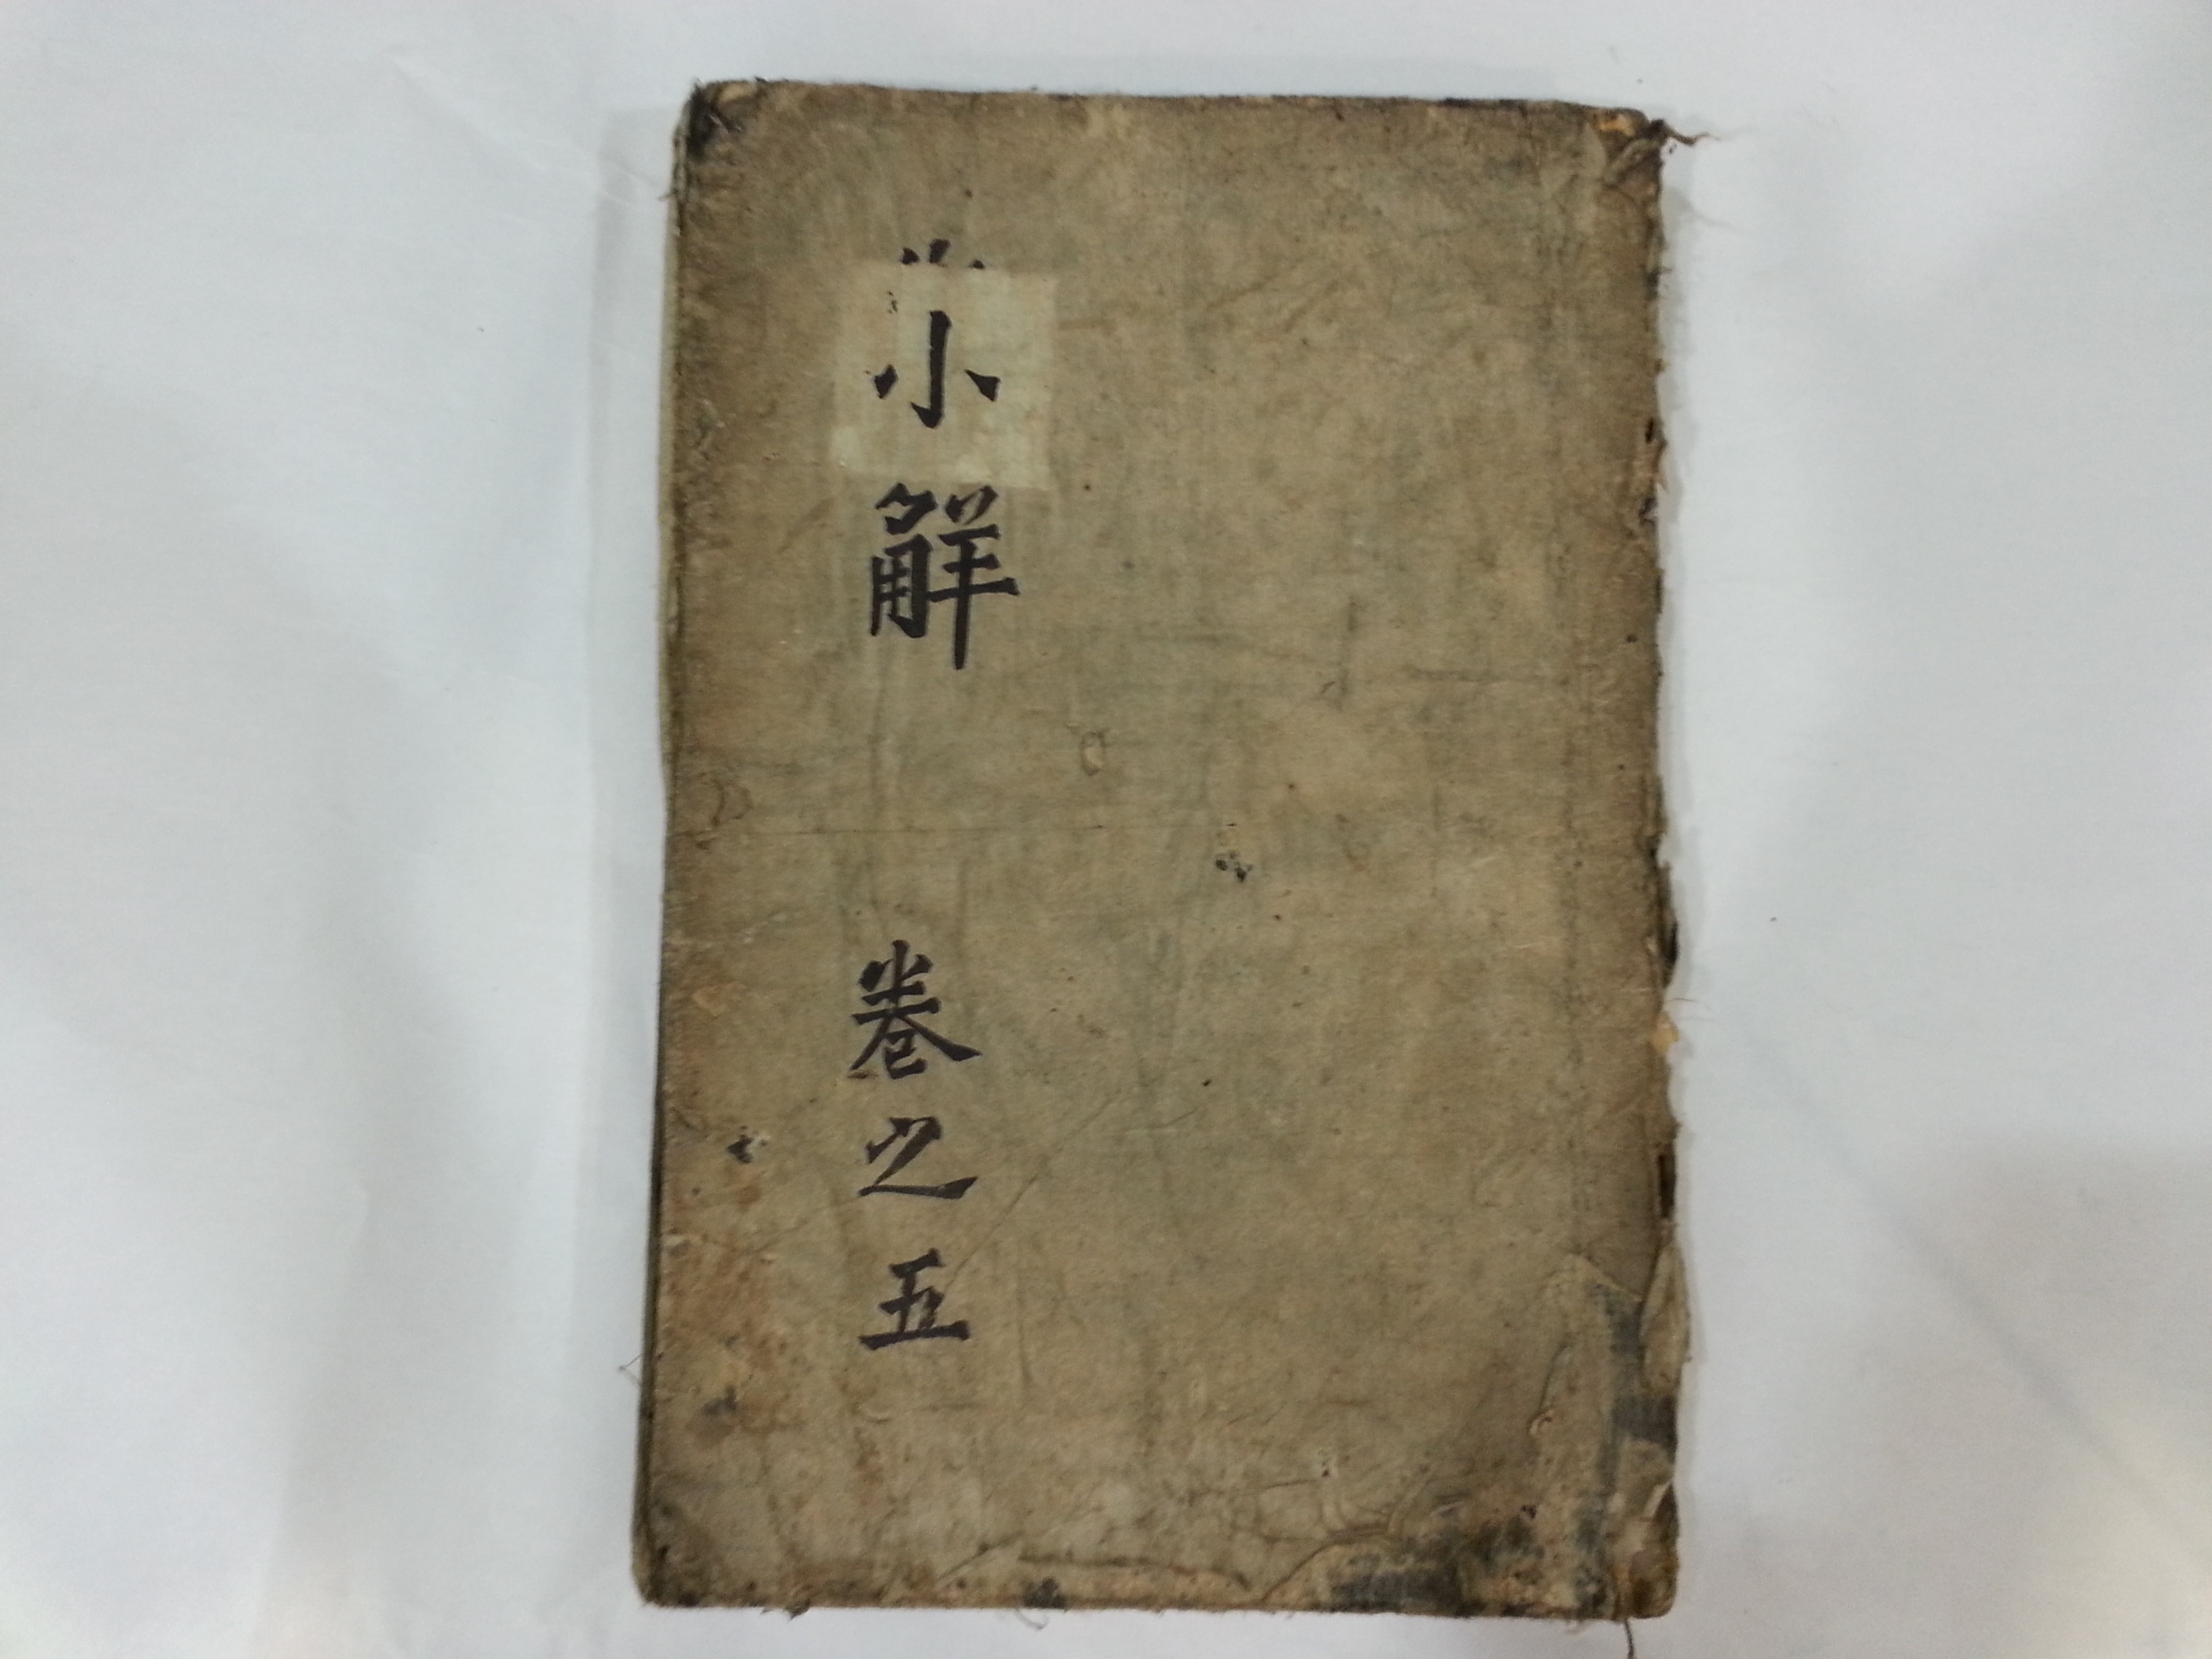 小觧 卷之五